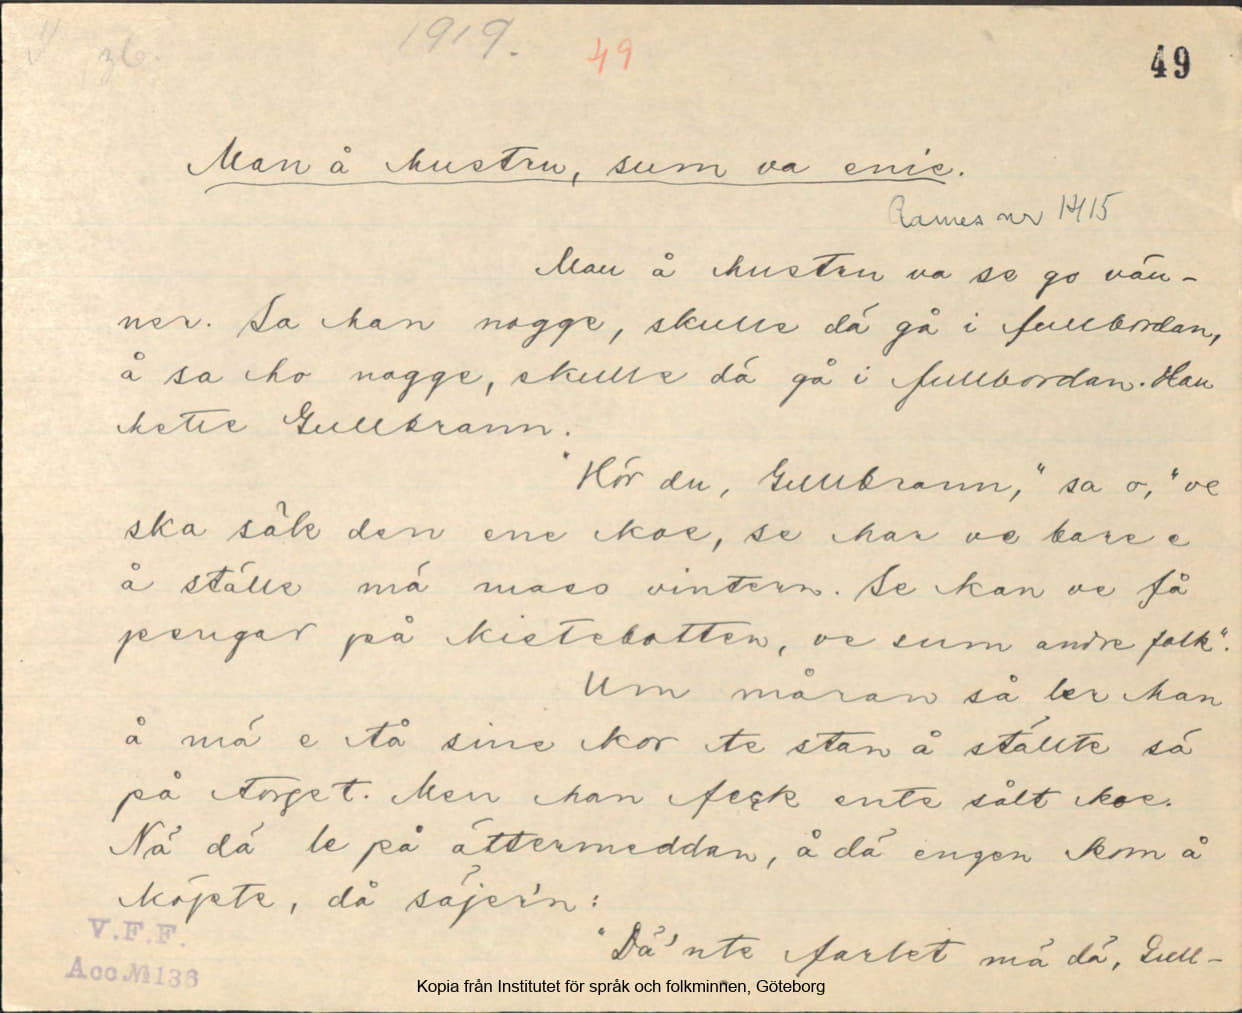 1919.
49
49
Man å hustru, sum va enie.
Aarnes nr 1415
Man å hustru va se go vän-
ner. Sa han nogge, skulle dá gå i fullbordan,
å sa ho nogge, skulle dá gå i fullbordan. Han
hette Gullbrann.
"Hör du, Gullbrann," sa o, "ve
ska säle den ene koe, se har ve bare e
å ställe má maes vintern. Se kan ve få
pengar på kistebotten, ve sum andre folk".
Um måran så ler han
å má e tå sine kor te stan å ställte sá
på torget. Men han feck ente sålt koe.
Nä dá le på ättermeddan, å dá engen kom å
köpte, då säjer'n:
"Dá'nte farlet má dá, Gull-
V.F.F.
Acc.№138
Kopia från Institutet för språk och folkminnen, Göteborg